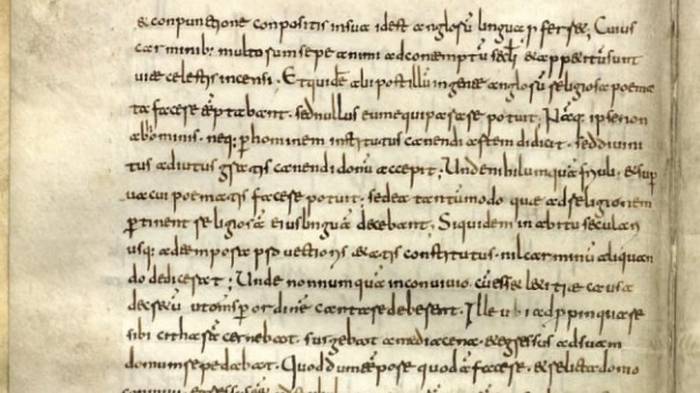 & conpunctione conpositis insua idest anglorū lingua pferret, Cuius
carminib; multorum sepe animi adcontemptū scli & appetitūsunt
uitae celestis incensi. Etquidē alii postillū ingente anglorū religiosa poema
ta facere tēptabant. sednullus eum equiparare potuit. Nāq; ipse non
abhominib; neq; phominem institutus canendi artem didicit. seddiuini
tus adiutus gratis canendi donū accepit; Unde nihil umquā friuoli. & sup
uacui poematis facere potuit. sedea tantūmodo quae adreligionem
ptinent religiosā eius linguā decebant. Siquidem inabitu seculari
usq; adtempora puectioris aetatis constitutus. nil carminū aliquan
do dedicerat; Unde nonnumquā inconuiuio. cū ess& letitiae causa
decretū ut omīs p ordinē cantare deberent. Ille ubi adppinquare
sibi citharā cernebat. surgebat amediacena. & egressus adsuam
domum repedabat. Quod dum tēpore quodā facer&. & relicta domo